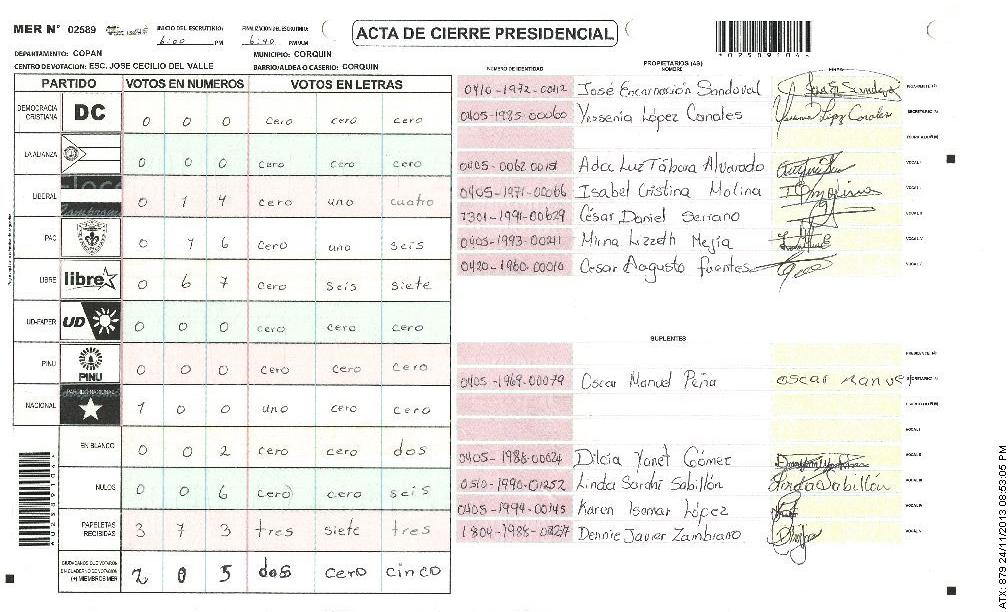 MER N° 02589 INICIO DEL ESCRUTINIO: 6:00 PM FINALIZACION DEL ESCRUTINIO: 6:40 PM/AM
ACTA DE CIERRE PRESIDENCIAL
*02589104*
DEPARTAMENTO: COPAN MUNICIPIO: CORQUIN
CENTRO DE VOTACION: ESC. JOSE CECILIO DEL VALLE BARRIO/ALDEA O CASERIO: CORQUIN
PARTIDO VOTOS EN NUMEROS VOTOS EN LETRAS
DEMOCRACIA CRISTIANA DC 0 0 0 cero cero cero
LA ALIANZA 0 0 0 cero cero cero
LIBERAL 0 1 4 cero uno cuatro
PAC 0 1 6 cero uno seis
LIBRE libre 0 6 7 cero seis siete
UD-FAPER UD 0 0 0 cero cero cero
PINU PINU 0 0 0 cero cero cero
NACIONAL PARTIDO NACIONAL 1 0 0 uno cero cero
EN BLANCO 0 0 2 cero cero dos
NULOS 0 0 6 cero cero seis
PAPELETAS RECIBIDAS 3 7 3 tres siete tres
CIUDADANOS QUE VOTARON EN CUADERNO DE VOTACION (+) MIEMBROS MER 2 0 5 dos cero cinco
NUMERO DE IDENTIDAD PROPIETARIOS (AS) NOMBRE FIRMA
0410-1972-00412 José Encarnación Sandoval PRESIDENTE (A)
0405-1985-00060 Yessenia López Canales SECRETARIO (A)
ESCRUTADOR (A)
Ada Luz Tábora Alvarado VOCAL I
0405-1971-00066 Isabel Cristina Molina VOCAL II
1301-1991-00629 César Daniel Serrano VOCAL III
0405-1993-00241 Mirna Lizzeth Mejía VOCAL IV
0420-1960-00010 Cesar Augusto fuentes VOCAL V
SUPLENTES
PRESIDENTE (A)
0405-1969-00079 Oscar Manuel Peña oscar Manuel SECRETARIO (A)
ESCRUTADOR (A)
VOCAL I
0405-1988-00024 Dilcia Yanet Gómez VOCAL II
0510-1990-01252 Linda Sarahi Sabillón Linda Sabillón VOCAL III
0405-1994-00145 Karen Isamar López VOCAL IV
Dennie Javier Zambrano VOCAL V
ATX: 879 24/11/2013 08:53:05 PM